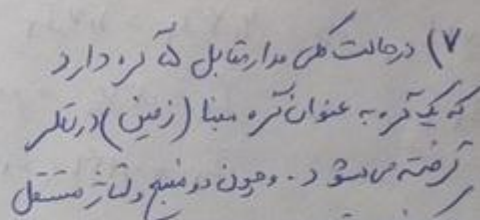 ۷) در حالت کلی مدار مقابل ۵ گره دارد
که یک گره به عنوان گره مبنا (زمین) در نظر
گرفته می شود. و چون دو منبع ولتاژ مستقل